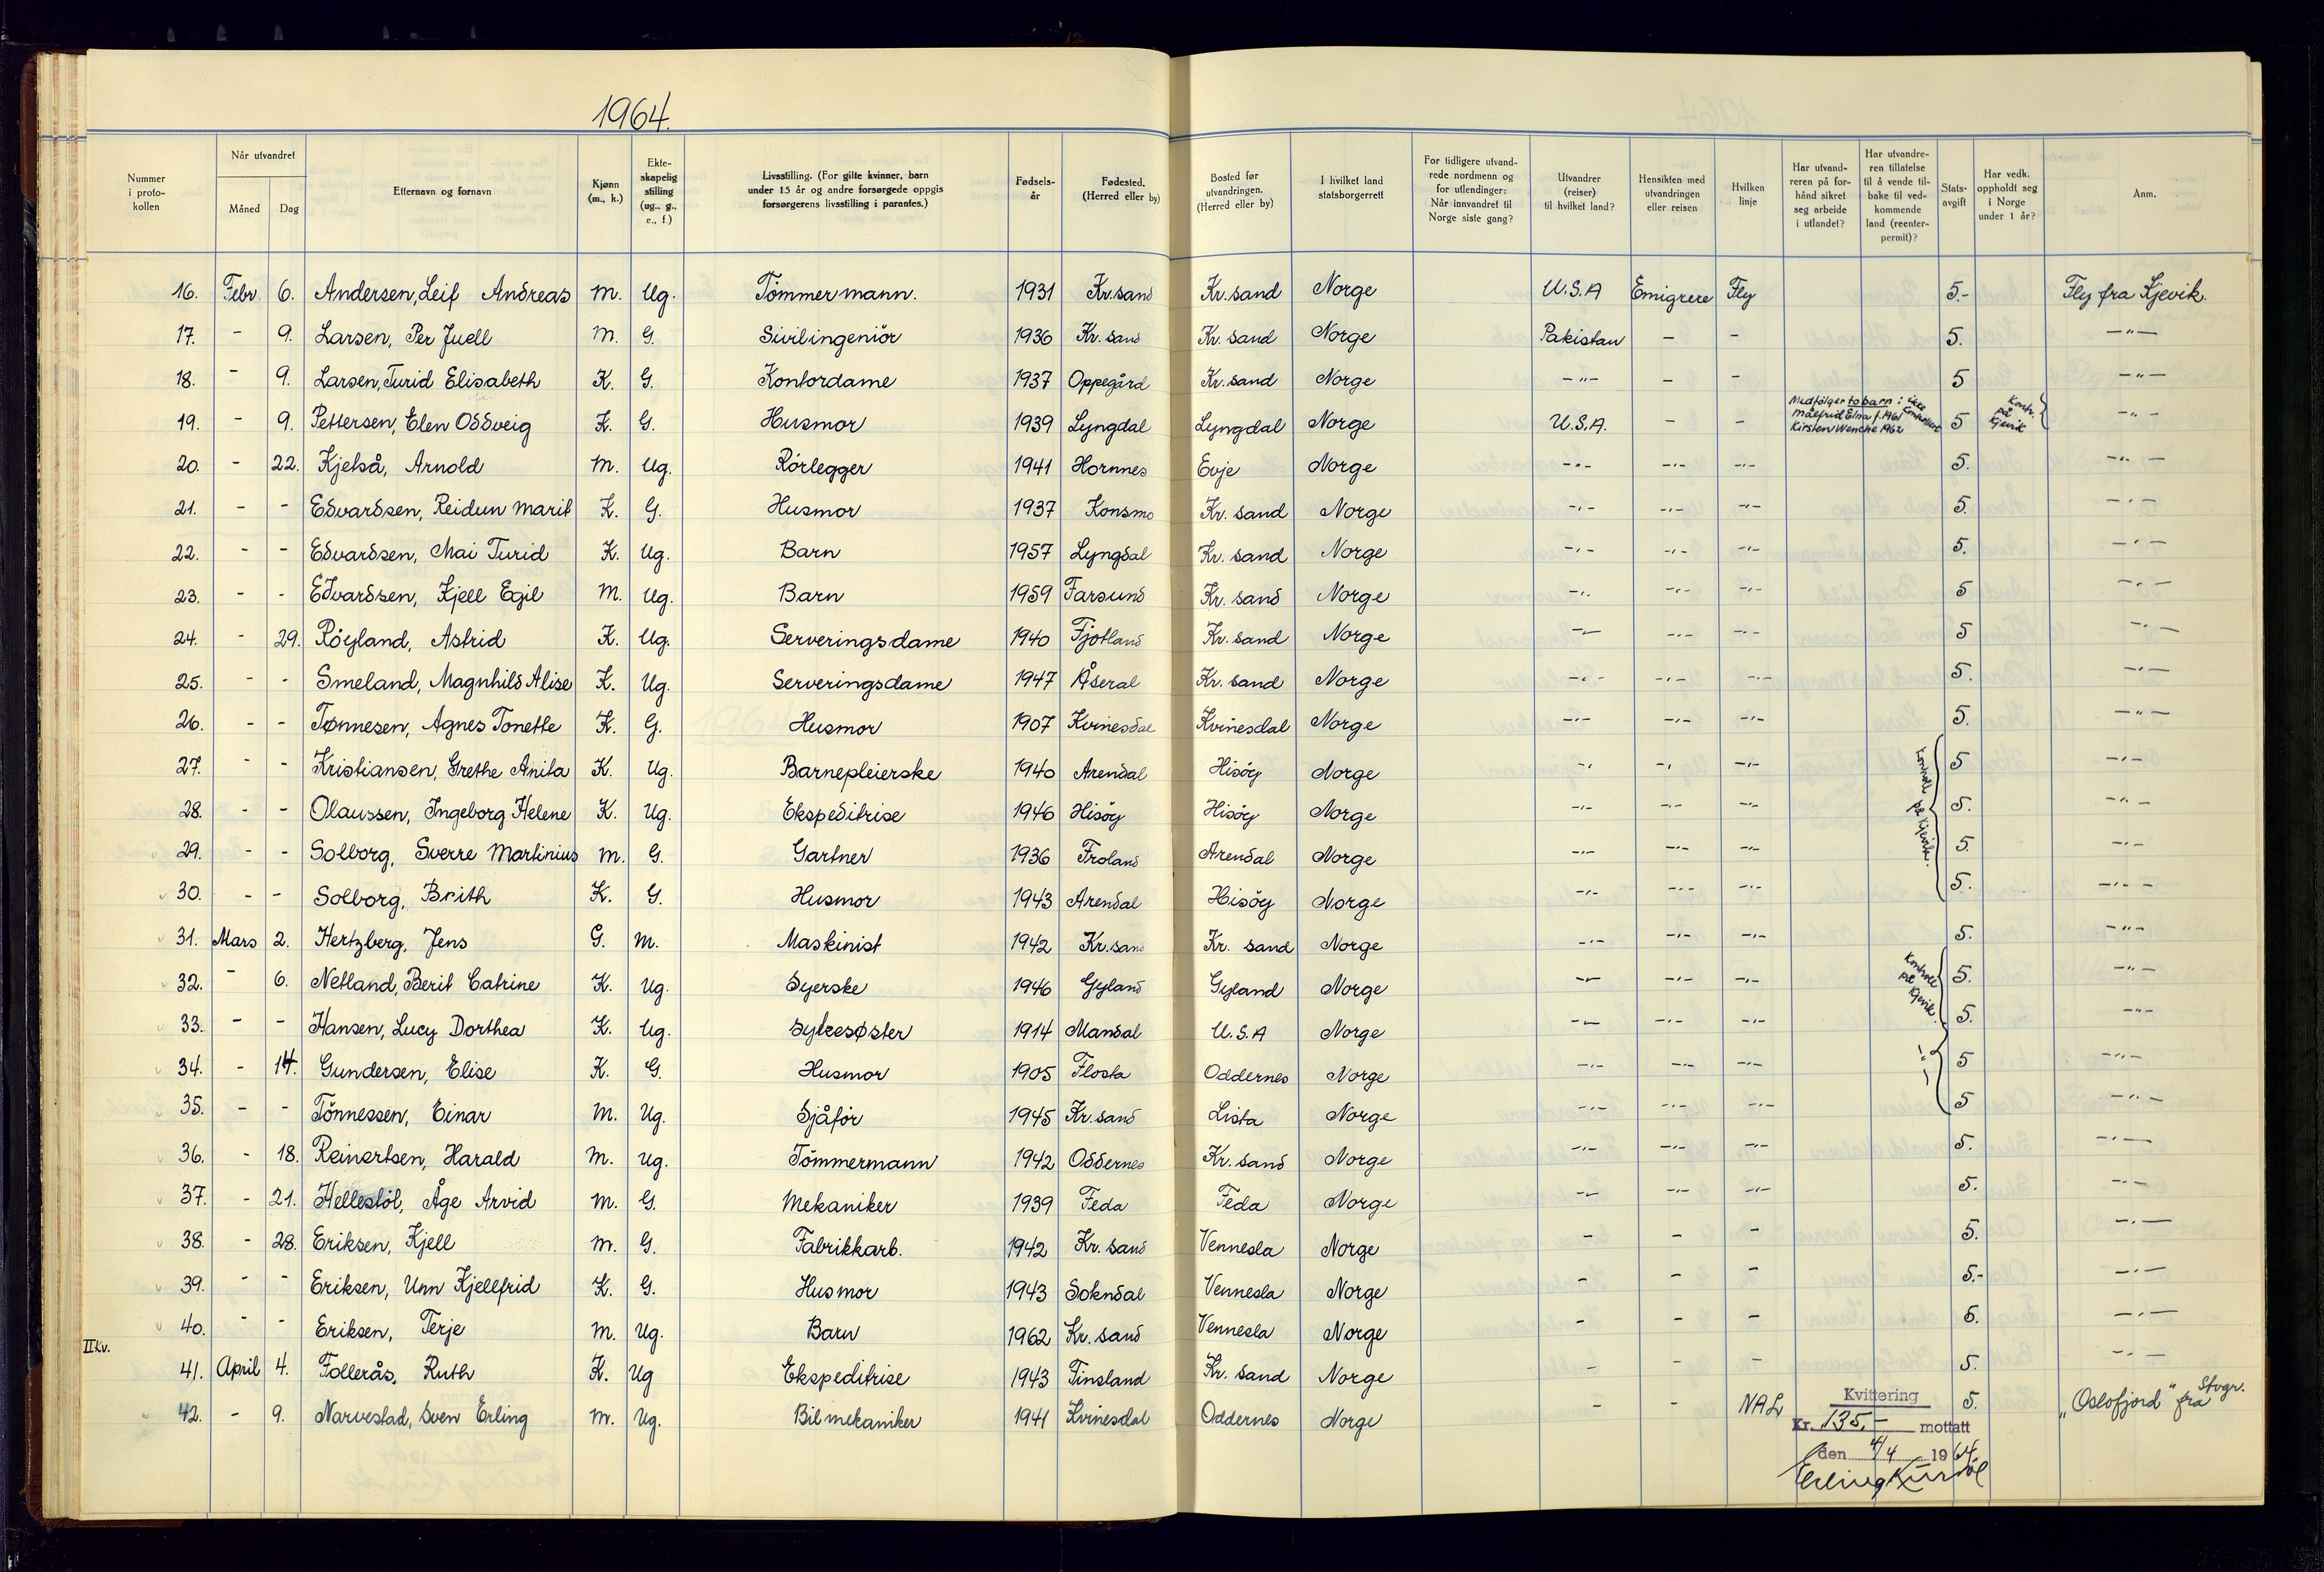 1964.
Nummer i proto-kollen | Når utvandret | Måned | Dag | Etternavn og fornavn | Kjønn (m., k.) | Ekte-skapelig stilling (ug., g., e., f.) | Livsstilling. (For gifte kvinner, barn under 15 år og andre forsørgede oppgis forsørgerens livsstilling i parantes.) | Fødsels-år | Fødested. (Herred eller by) | Bosted før utvandringen. (Herred eller by) | I hvilket land statsborgerrett | For tidligere utvand-rede nordmenn og for utlendinger: Når innvandret til Norge siste gang? | Utvandrer (reiser) til hvilket land? | Hensikten med utvandringen eller reisen | Hvilken linje | Har utvand-reren på for-hånd sikret seg arbeide i utlandet? | Har utvandre-ren tillatelse til å vende til-bake til ved-kommende land (reenter-permit)? | Stats-avgift | Har vedk. oppholdt seg i Norge under 1 år? | Anm.
16. Febr. 6. Andersen, Leif Andreas m. Ug. Tömmermann. 1931 Kr.sand Kr.sand Norge U.S.A Emigrere Fly 5.- Fly fra Kjevik.
17. - 9. Larsen, Per Juell m. G. Sivilingeniör 1936 Kr. sand Kr. sand Norge Pakistan - - 5. -"-
18. - 9. Larsen, Turid Elisabeth K. G. Kontordame 1937 Oppegård Kr. sand Norge -"- - - 5 -"-
19. - 9. Pettersen, Elen Oddveig K. G. Husmor 1939 Lyngdal Lyngdal Norge U.S.A. - - Medfølger to barn: ikke kontrollert Målfrid Elna f. 1961 Kirsten Wenche 1962 5 Kontr. på Kjevik -"-
20. - 22. Kjetså, Arnold m. Ug. Rörlegger 1941 Hornnes Evje Norge -"- -"- -"- 5. -"-
21. - - Edvardsen, Reidun Marit K. G. Husmor 1937 Konsmo Kr. sand Norge -"- -"- -"- 5. -"-
22. - - Edvardsen, Mai Turid K. Ug. Barn 1957 Lyngdal Kr. sand Norge -"- -"- -"- 5. -"-
23. - - Edvardsen, Kjell Egil M. Ug. Barn 1959 Farsund Kr. sand Norge -"- -"- -"- 5 -"-
24. - 29. Röyland, Astrid K. Ug. Serveringsdame 1940 Fjotland Kr. sand Norge -"- -"- -"- 5 -"-
25. - - Smeland, Magnhild Alise K. Ug. Serveringsdame 1947 Åseral Kr. sand Norge -"- -"- -"- 5. -"-
26. - - Tønnesen, Agnes Tonette K. G. Husmor 1907 Kvinesdal Kvinesdal Norge -"- -"- -"- 5. -"-
27. - - Kristiansen, Grethe Anita K. Ug. Barnepleierske 1940 Arendal Hisöy Norge -"- -"- -"- Kontroll på Kjevik. 5 -"-
28. - - Olaussen, Ingeborg Helene K. Ug. Ekspeditrise 1946 Hisöy Hisöy Norge -"- -"- -"- 5. -"-
29. - - Solborg, Sverre Martinius m. G. Gartner 1936 Froland Arendal Norge -"- -"- -"- 5. -"-
30. - - Solborg, Brith K. G. Husmor 1943 Arendal Hisöy Norge -"- -"- -"- 5. -"-
31. Mars 2. Hertzberg, Jens G. m. Maskinist 1942 Kr.sand Kr. sand Norge -"- -"- -"- 5. -"-
32. - 6. Netland, Berit Catrine K. Ug. Syerske 1946 Gyland Gyland Norge -"- -"- -"- Kontroll på Kjevik. 5. -"-
33. - - Hansen, Lucy Dorthea K. Ug. Sykesøster 1914 Mandal U.S.A Norge -"- -"- -"- 5. -"-
34. - 14. Gundersen, Elise K. G. Husmor 1905 Flosta Oddernes Norge -"- -"- -"- -"- 5 -"-
35. - - Tönnessen, Einar M. Ug. Sjåför 1945 Kr. sand Lista Norge -"- -"- -"- 5 -"-
36. - 18. Reinertsen, Harald m. Ug. Tömmermann 1942 Oddernes Kr. sand Norge -"- -"- -"- 5. -"-
37. - 21. Hellestöl, Åge Arvid m. G. Mekaniker 1939 Feda Feda Norge -"- -"- -"- 5. -"-
38. - 28. Eriksen, Kjell m. G. Fabrikkarb. 1942 Kr. sand Vennesla Norge - - - 5. -"-
39. - - Eriksen, Unn Kjellfrid K. G. Husmor 1943 Sokndal Vennesla Norge - - - 5.- -"-
40. - - Eriksen, Terje m. Ug. Barn 1962 Kr. sand Vennesla Norge - - - 5. -"-
II Kv.
41. April 4. Follerås, Ruth K. Ug Ekspeditrise 1943 Finsland Kr. sand Norge - - - 5. -"-
42. - 9. Narvestad, Sven Erling m. Ug. Bilmekaniker 1941 Kvinesdal Oddernes Norge - - NAL 5. "Oslofjord" fra Stvgr.
Kvittering
Kr. 135,- mottatt
den 4/4 1964
Erling